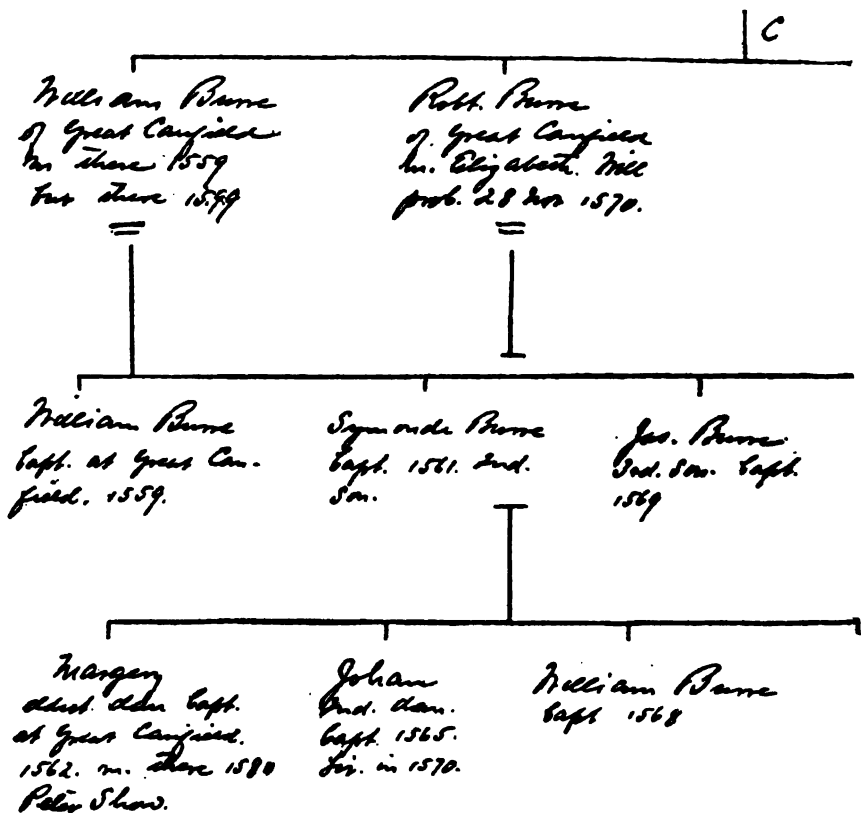 C
William Burre
of Great Canfield
m there 1559
bur there 1599
Robt. Burre
of Great Canfield
m. Elizabeth. Will
prob. 28 Nov 1570.
William Burre
bapt. at Great Can-
field. 1559.
Symonde Burre
bapt. 1561. 2nd.
Son.
Jas. Burre
3rd. Son. bapt.
1569
Margery
eldest. dau bapt.
at Great Canfield.
1562. m. there 1580
Peter Show.
Johan
2nd. dau.
bapt. 1565.
liv. in 1570.
William Burre
bapt 1568